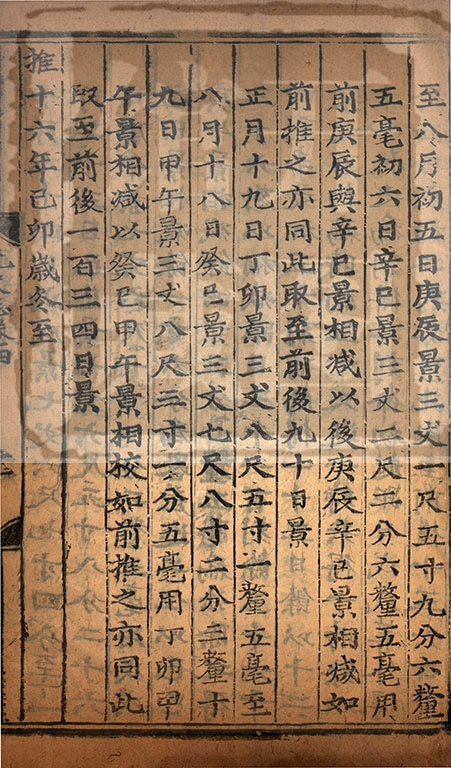 至八月初五日庚辰景三丈一尺五寸九分六釐
五毫初六日辛巳景三丈二尺二分六釐五毫用
前庚辰與辛巳景相减以後庚辰辛巳景相减如
前推之亦同此取至前後九十日景
正月十九日丁卯景三丈八尺五寸一釐五毫至
八月十八日癸巳景三丈七尺八寸二分三釐十
九日甲午景三丈八尺三寸一分五毫用丁卯甲
午景相减以癸巳甲午景相校如前推之亦同此
取至前後一百三四日景
推十六年己卯歲冬至